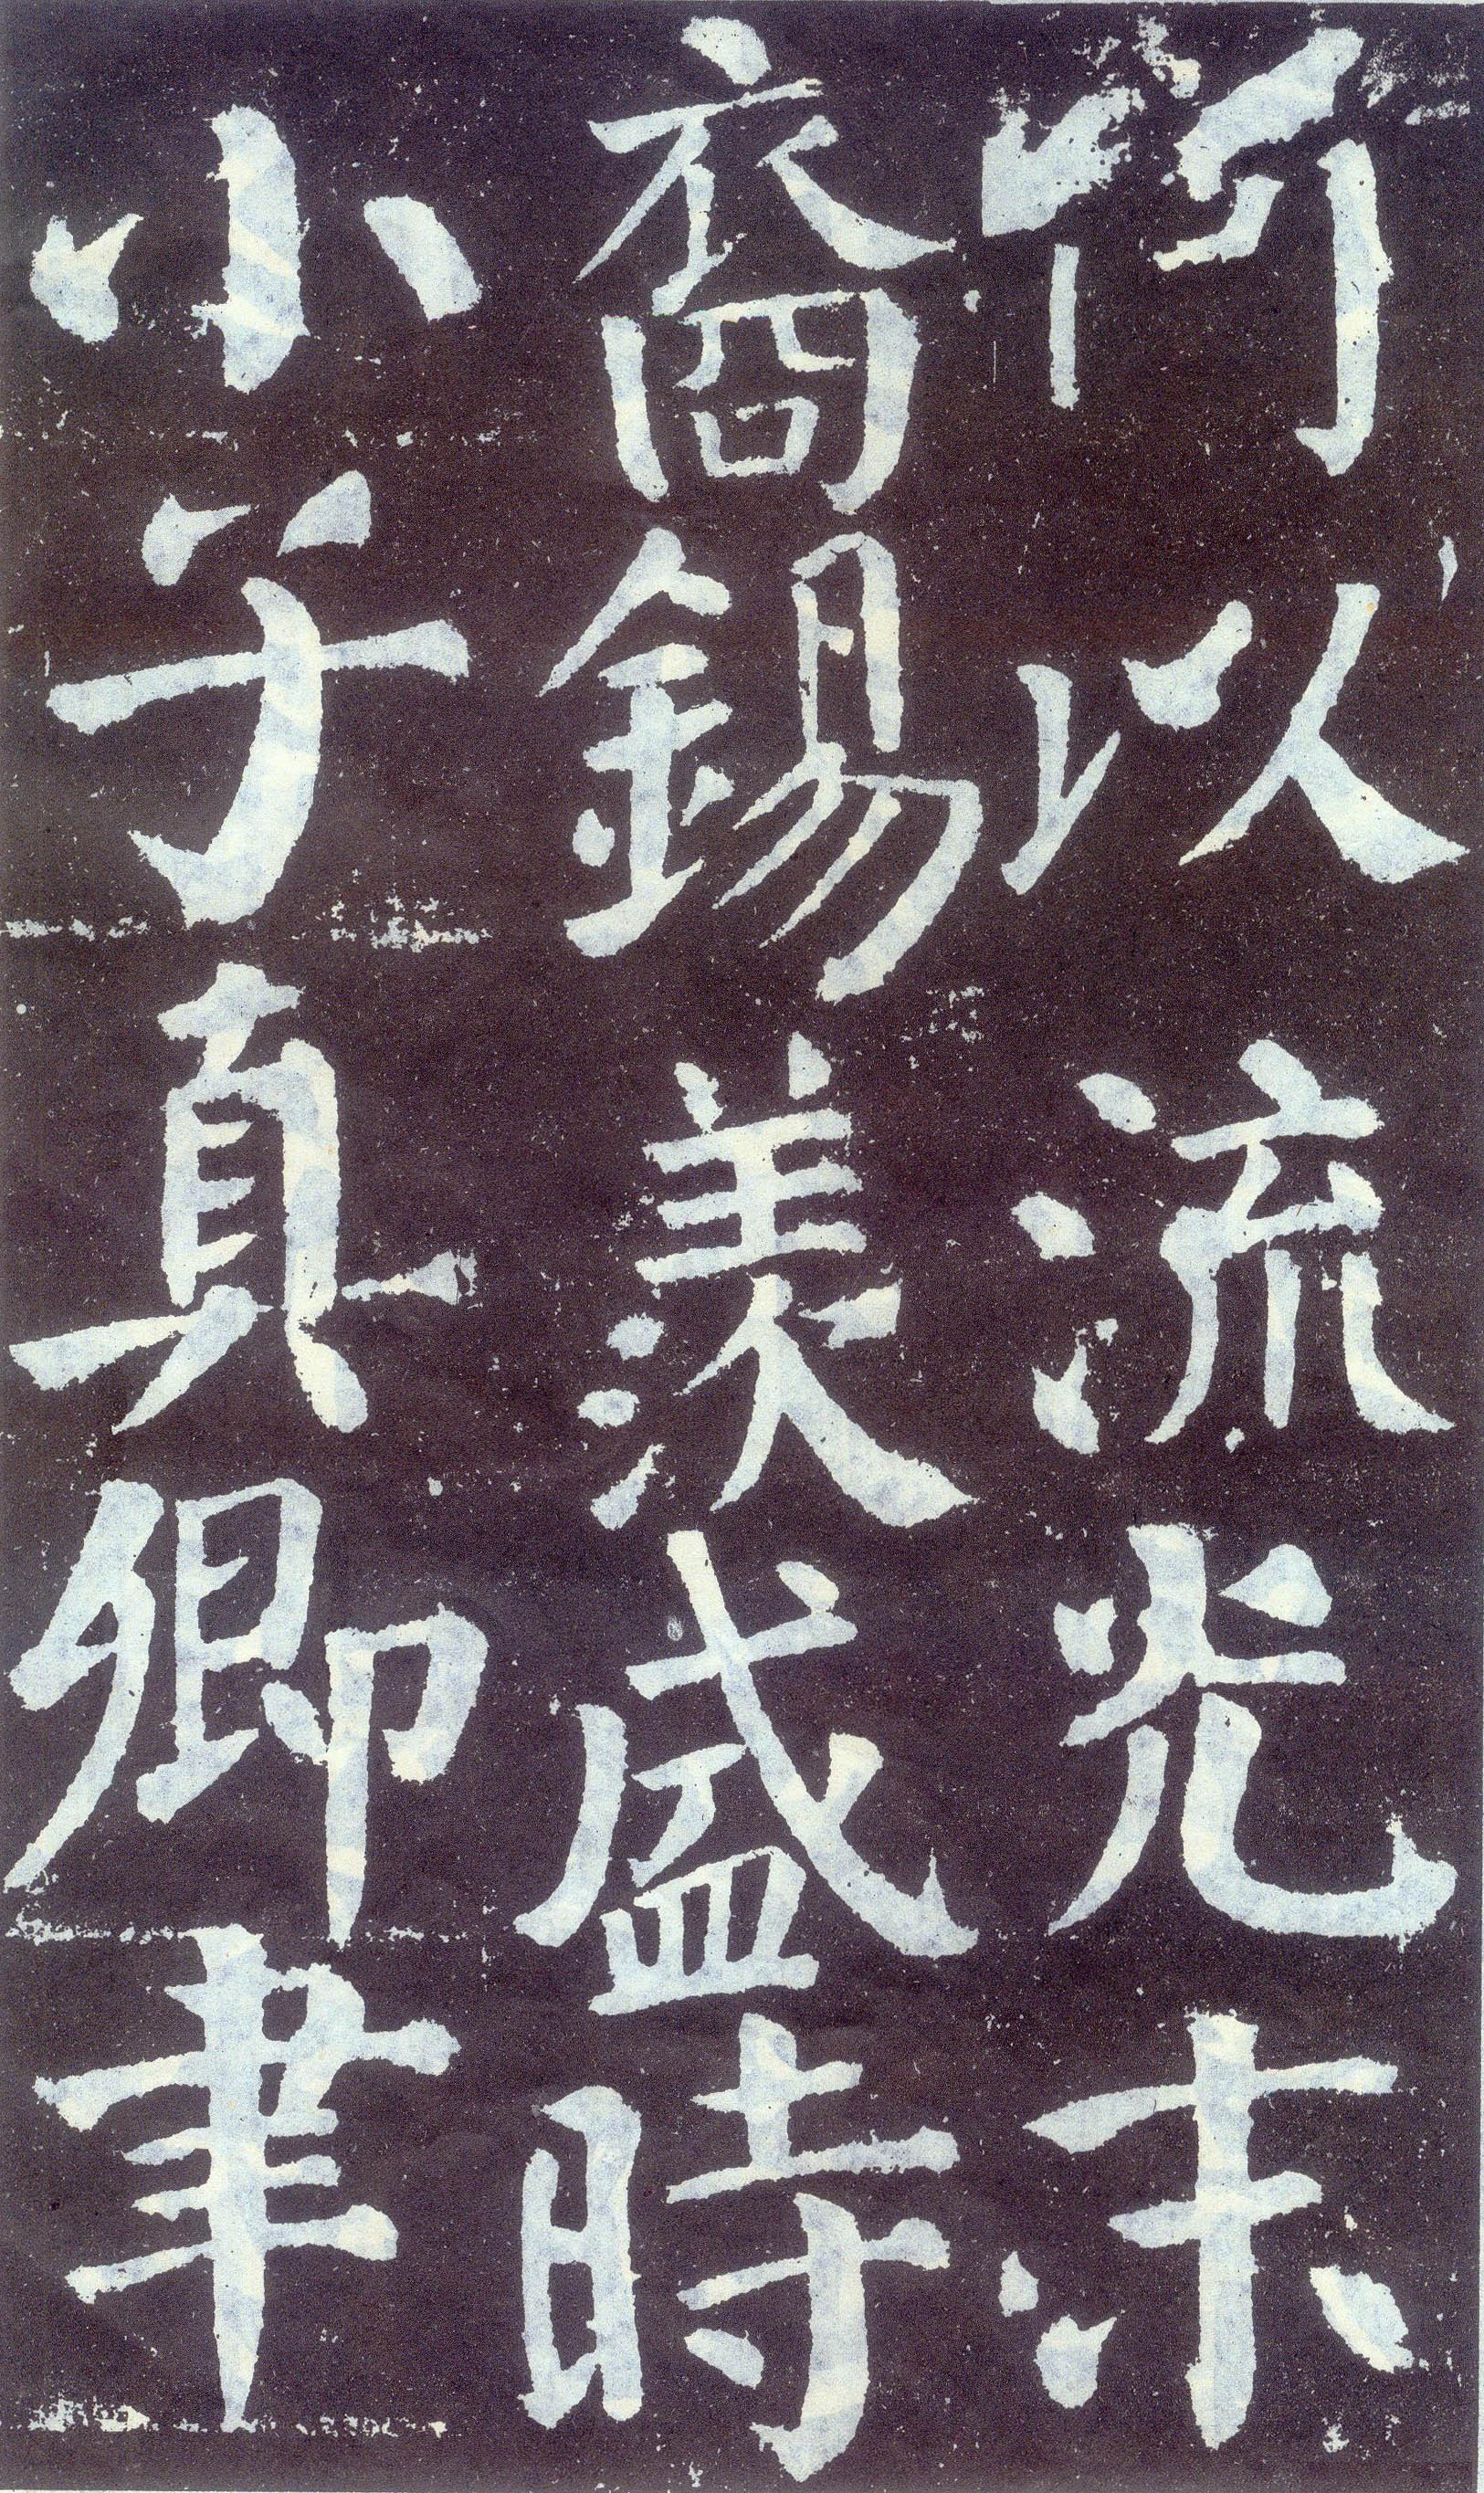 所以流光末
裔錫羨盛時
小子真卿聿